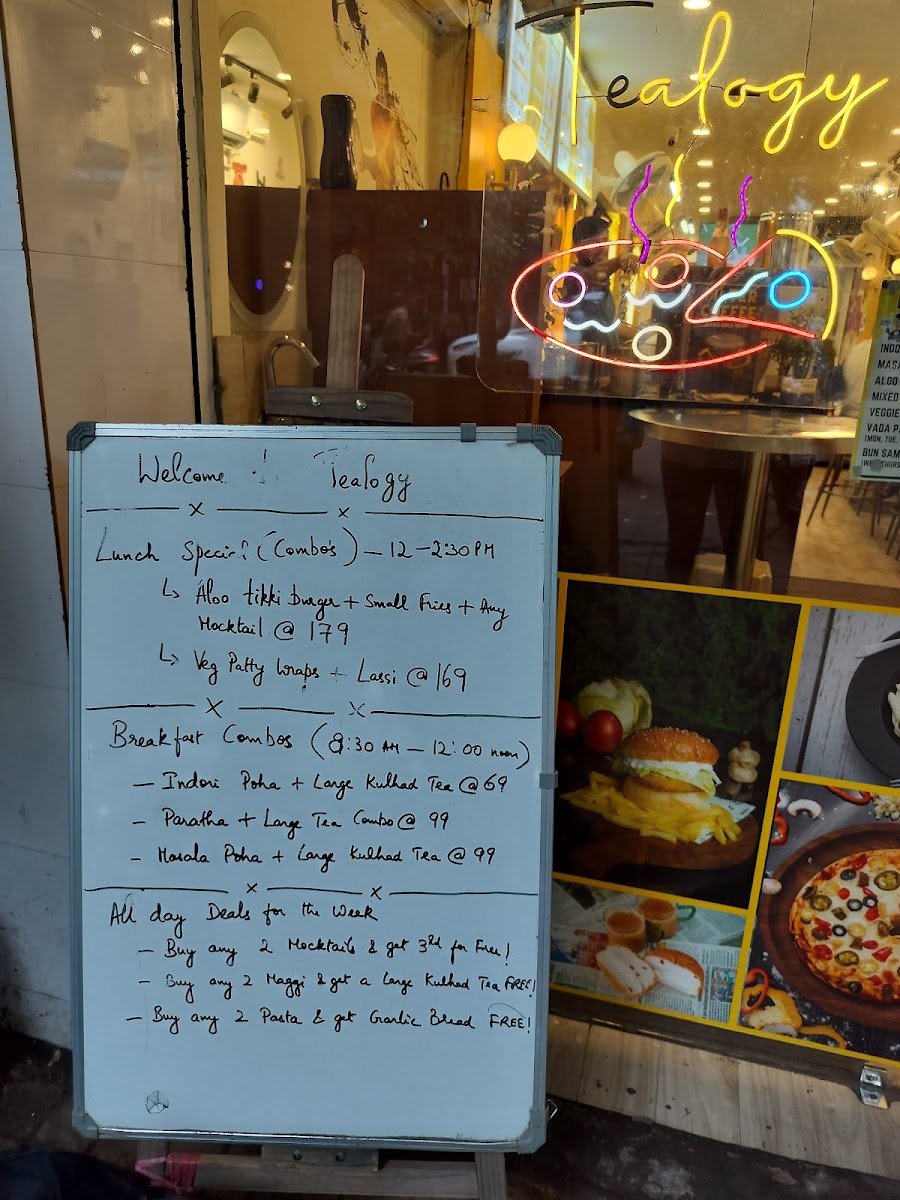 Tealogy
Welcome ! Tealogy
Lunch Special (Combo's) - 12 - 2:30 PM
↳ Aloo tikki Burger + Small Fries + Any
Mocktail @ 179
↳ Veg Patty Wraps + Lassi @ 169
Breakfast Combos (8:30 AM - 12:00 noon)
- Indori Poha + Large Kulhad Tea @ 69
- Paratha + Large Tea Combo @ 99
- Masala Poha + Large Kulhad Tea @ 99
All day Deals for the Week
- Buy any 2 Mocktails & get 3rd for Free!
- Buy any 2 Maggi & get a Large Kulhad Tea FREE!
- Buy any 2 Pasta & get Garlic Bread FREE!
INDO
MASA
ALOO
MIXED
VEGGIE
VADA P
(MON, TUE,
BUN SAM